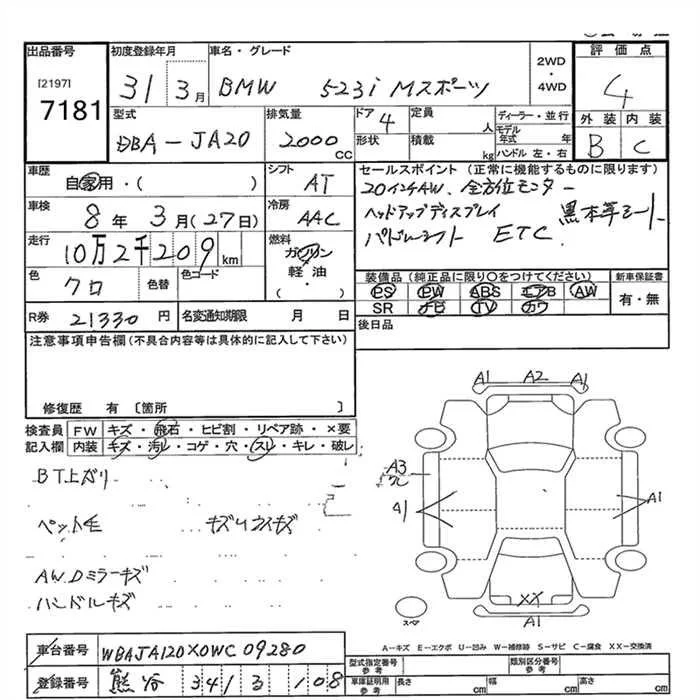 出品番号 初度登録年月 車名・グレード 2WD・4WD 評価点
[2197]
7181 31 3月 BMW 523i Mスポーツ 4
型式 排気量 ドア 定員 ディーラー・並行 外装 内装
DBA-JA20 2000cc 4 人 モデル年式 年 B C
形状 積載 kg ハンドル 左・右
車歴 シフト セールスポイント (正常に機能するものに限ります)
自家用・( ) AT 20インチAW、全方位モニター
車検 冷房 ヘッドアップディスプレイ 黒本革シート
8年 3月(27日) AAC パドルシフト ETC
走行 燃料
10万2千209km ガソリン
軽・油
( )
色 色替 色コード 装備品(純正品に限り○をつけてください) 新車保証書
クロ PS PW ABS エアB AW 有・無
SR ナビ TV カワ
R券 21330円 名変通知期限 月 日 後日品
注意事項申告欄(不具合内容等は具体的に記入して下さい)
修復歴 有〔箇所 〕
検査員記入欄 FW キズ・飛石・ヒビ割・リペア跡・×要
内装 キズ・汚レ・コゲ・穴・スレ・キレ・破レ
BT上ガリ
ペット毛
AW.Dミラーキズ
ハンドルキズ
A1 A2 A1
A3
A1
XX
A1
スペア
A-キズ E-エクボ U-凹み W-補修跡 S-サビ C-腐食 XX-交換済
車台番号 WBAJA120X0WC09280
登録番号 熊谷 341 ろ 108
型式指定番号 参考 類別区分番号 参考
車庫証明用 参考 長さ cm 幅 cm 高さ cm